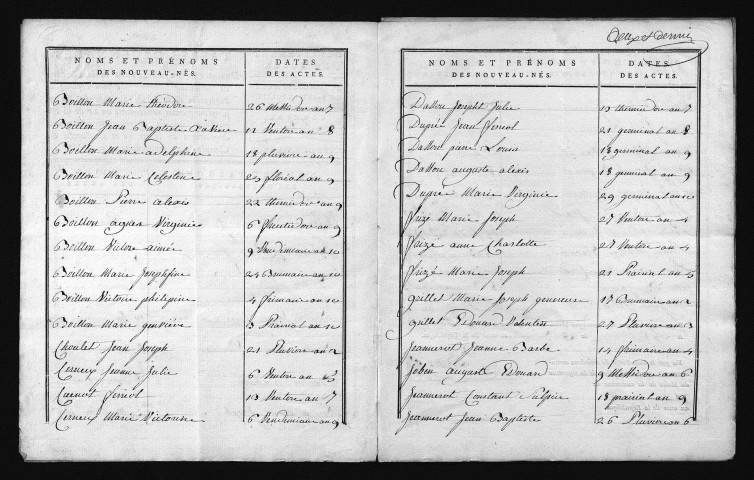 NOMS ET PRÉNOMS
DES NOUVEAU-NÉS.
DATES
DES ACTES.
Boillon Marie théodore 26 Messidor an 7
Boillon Jean Baptiste Xavier 12 Ventose an 8
Boillon Marie adelphine 18 pluviose an 9
Boillon Marie Celestine 29 floréal an 9
Boillon Pierre alexis 22 thermidor an 9
Boillon agnes Virginie 6 fructidor an 9
Boillon Victore aimée 9 Vendemiaire an 10
Boillon Marie Josephine 24 Brumaire an 10
Boillon Victoire philipine 4 frimaire an 10
Boillon Marie geneviève 3 Prairial an 10
Choulet Jean Joseph 21 Pluviose an 2
Cerneux Jeanne Julie 6 Ventose an
Cuenot ferreol 13 Ventose an 7
Cerneux Marie Victorine 6 Vendemiaire an 9
Deux et dernier
NOMS ET PRÉNOMS
DES NOUVEAU-NÉS.
DATES
DES ACTES.
Dallou Joseph Julie 12 thermidor an 7
Dupré Jean ferreol 21 germinal an 8
Dallou 18 germinal an 9
Dallou auguste alexis 18 germinal an 9
Dupré Marie Virginie 29 germinal an 10
Marie Joseph 27 Ventose an 4
anne Charlotte 27 Ventose an 4
Marie Joseph 21 Prairial an 5
guillet Marie Joseph genereuse 17 Brumaire an 2
guillet Edouard Valentin 27 Pluviose an 3
Jeannerot Jeanne Barbe 14 frimaire an 4
Jobin auguste Edouard 9 Messidor an 6
Jeannerot Constant Sulpice 18 prairial an 9
Jeannerot Jean Baptiste 26 Pluviose an 6